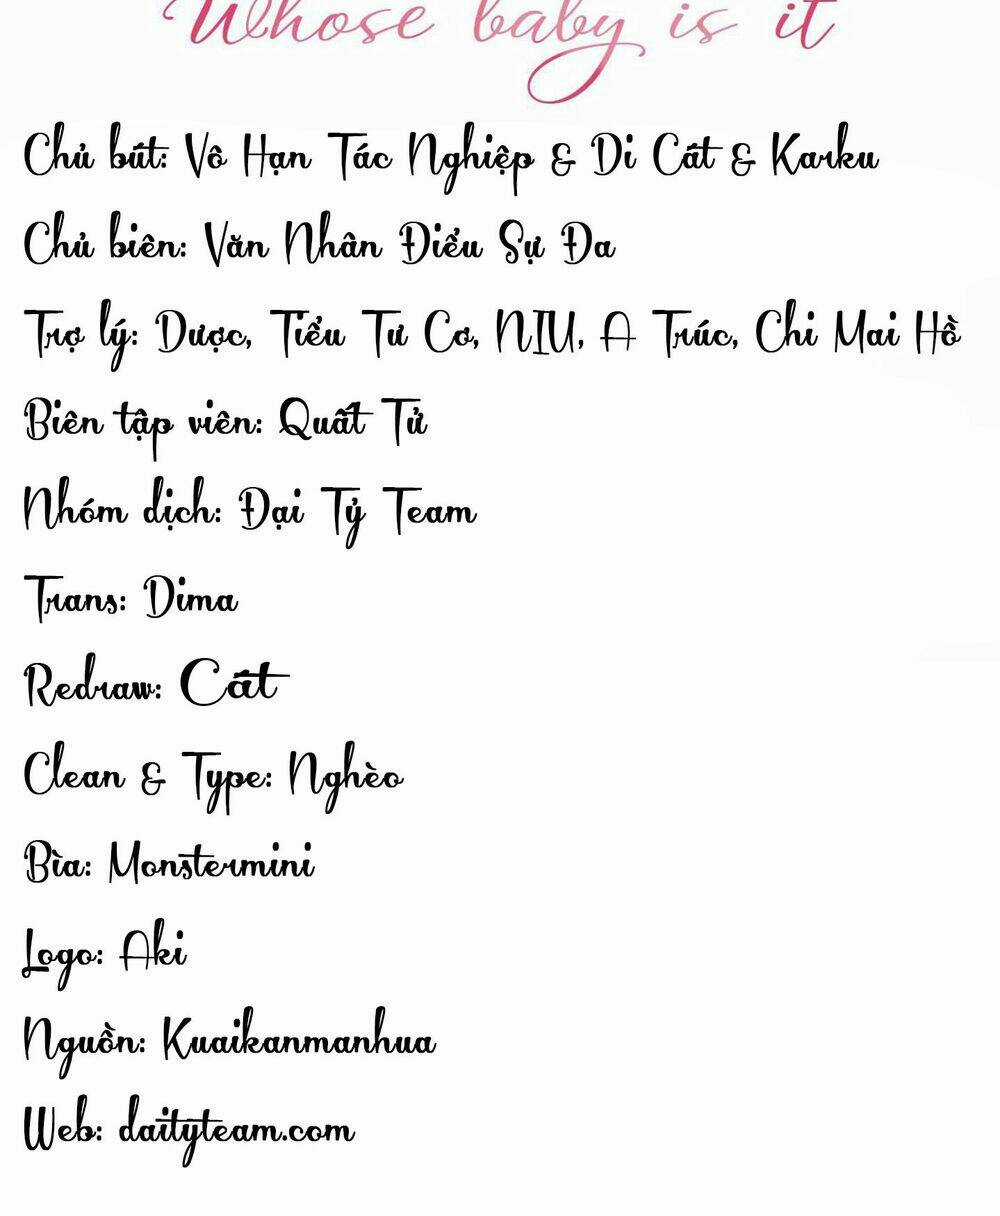 Whose baby is it
Chủ bút: Vô Hạn Tác Nghiệp & Di Cát & Karku
Chủ biên: Văn Nhân Điểu Sự Đa
Trợ lý: Dược, Tiểu Tư Cơ, NIU, A Trúc, Chi Mai Hồ
Biên tập viên: Quất Tử
Nhóm dịch: Đại Tỷ Team
Trans: Dima
Redraw: Cát
Clean & Type: Nghèo
Bìa: Monstermini
Logo: Aki
Nguồn: Kuaikanmanhua
Web: daityteam.com